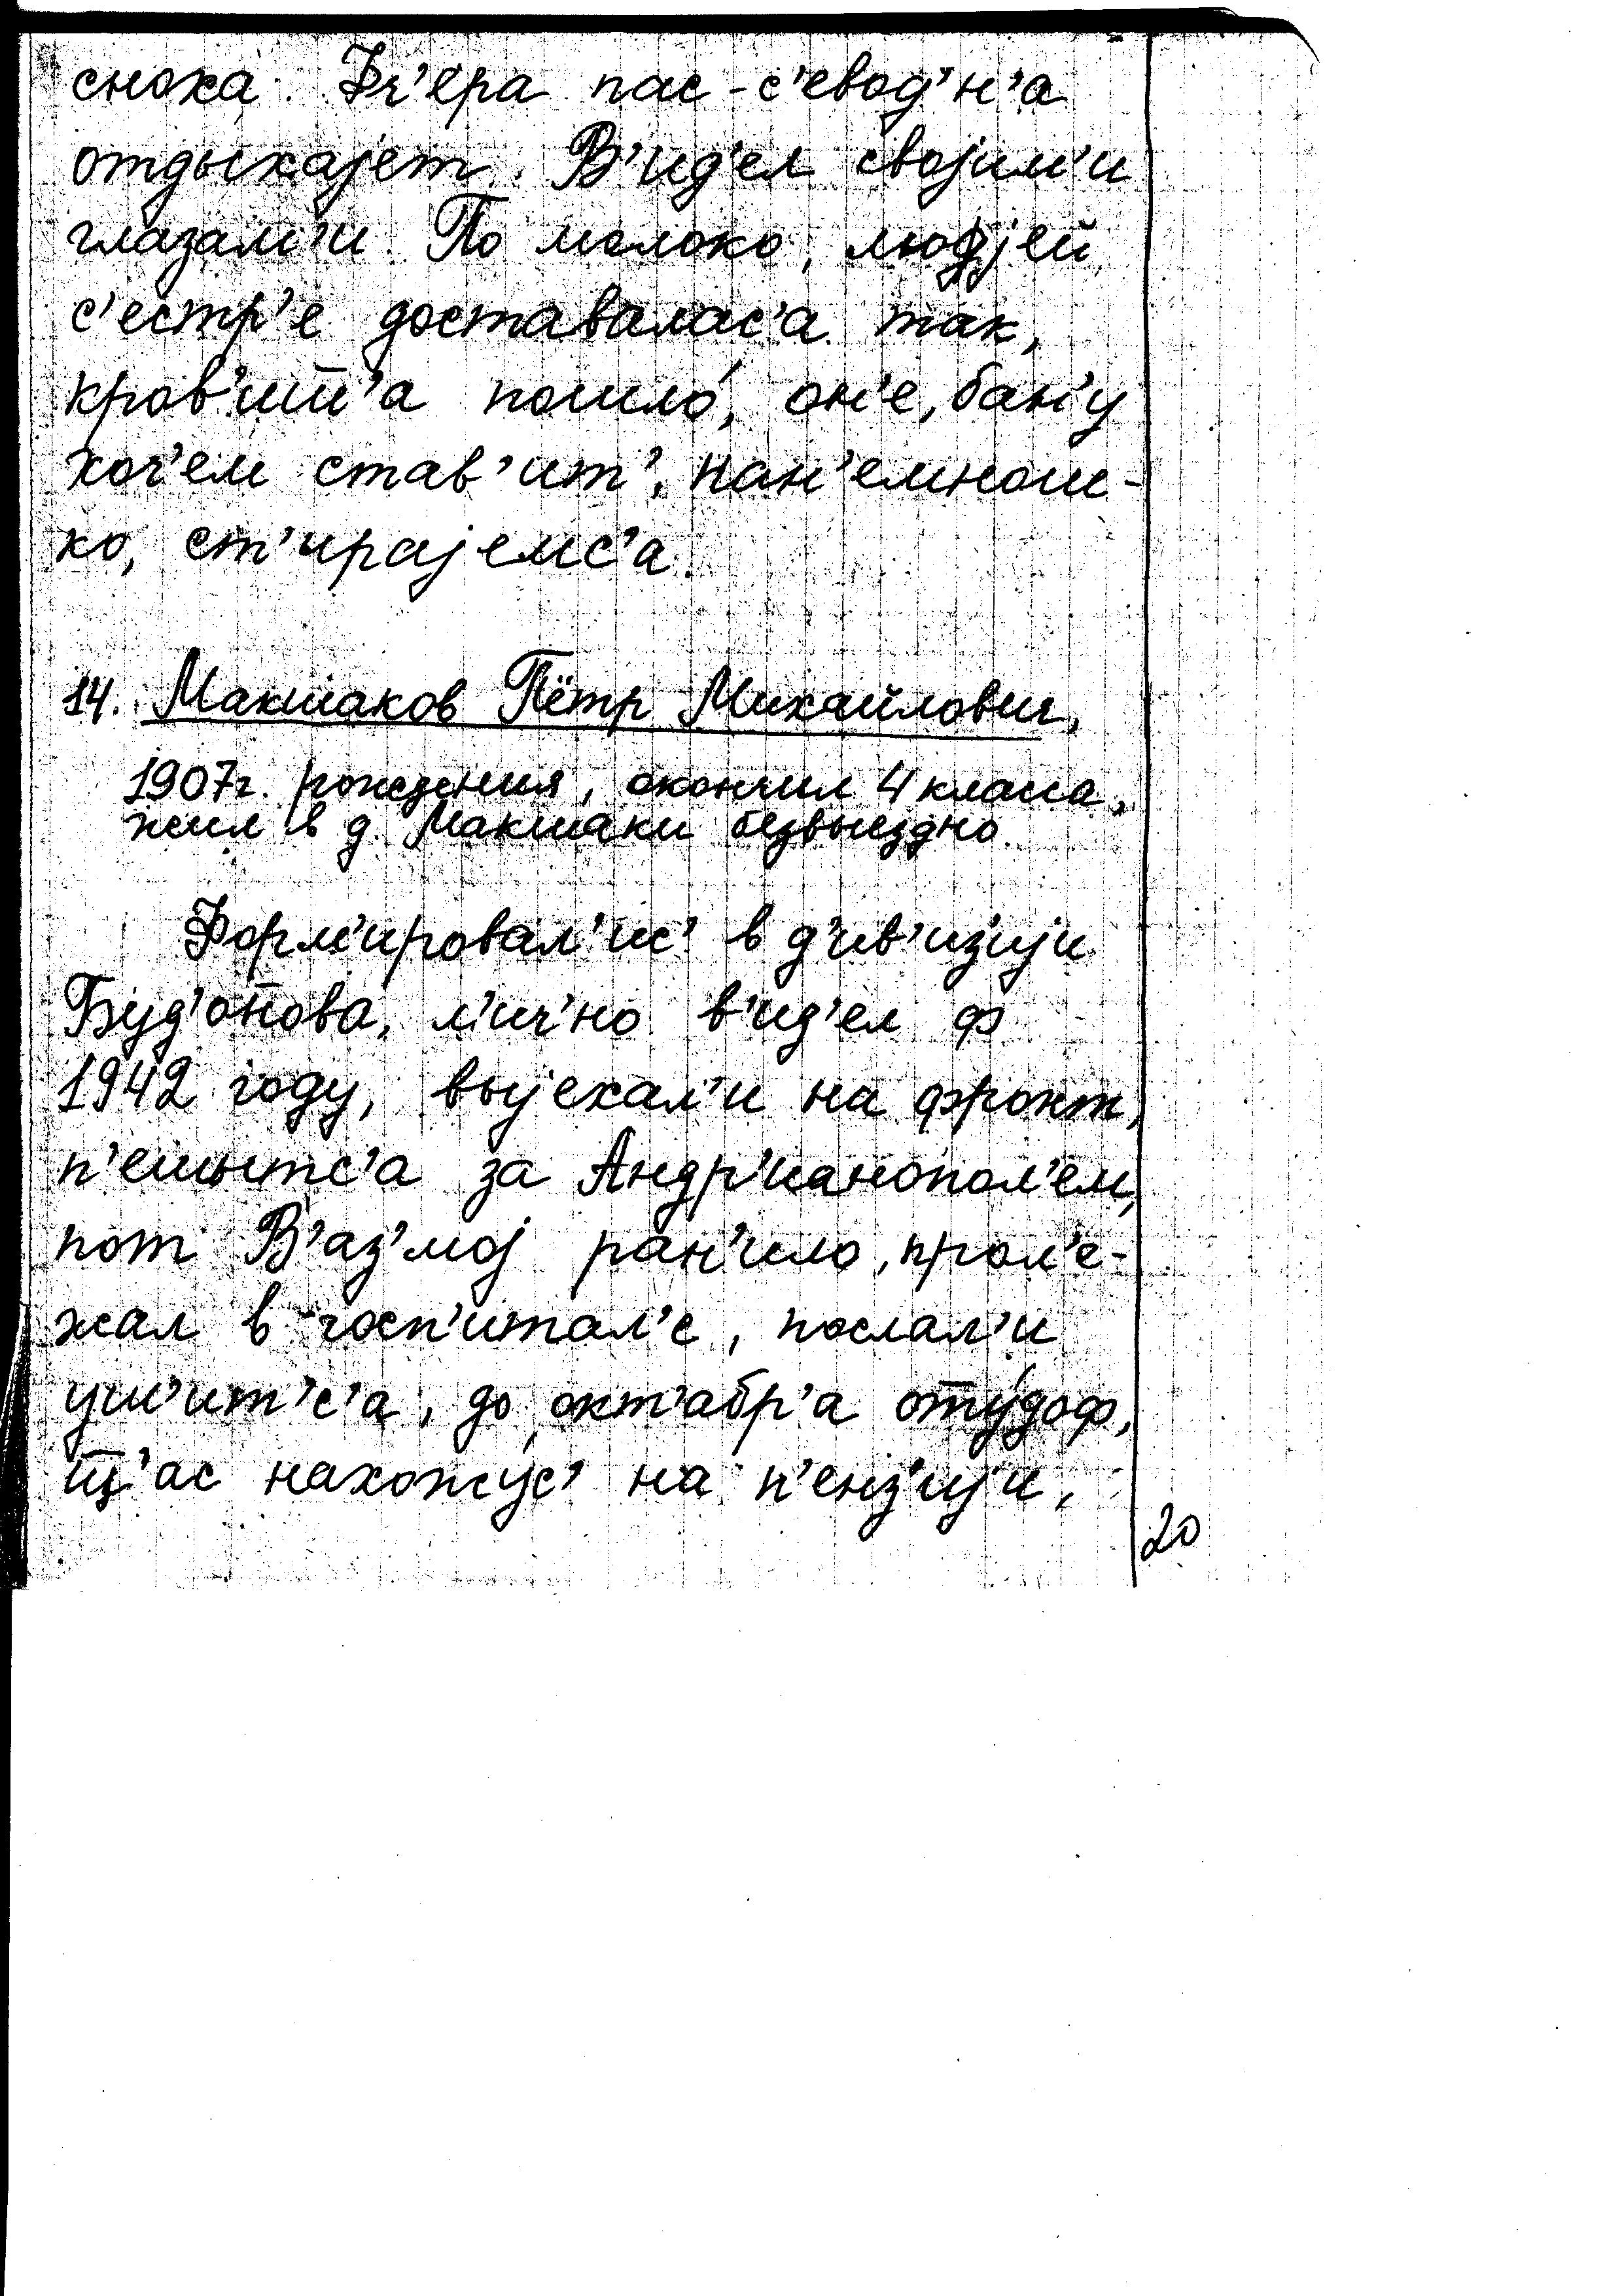 сноха. Фч'ера пас - с'евод'н'а
отдыхаjет. В'ид'ел своjим'и
глазам'и. По молоко, людjей
с'естр'е доставалас'а так,
кров'ишш'а пошло́, он'е, бан'у
хоч'ем став'ит', пон'емнош-
ко, ст'ираjемс'а.
14. Макшаков Пётр Михайлович,
1907г. рождения, окончил 4 класса,
жил в д. Макшаки безвыездно.
Форм'ировал'ис' в д'ив'из'иjи
Буд'о̄нова, л'ич'но в'ид'ел ф
1942 году, выjехал'и на фронт,
п'ешытс'а за Андр'ианопол'ем,
пот В'аз'моj ран'ило, прол'е-
жал в госп'итал'е, послал'и
уч'ит'с'а, до окт'абр'а оту́доф,
щ'ас нахожус' на п'енз'иjи,
20